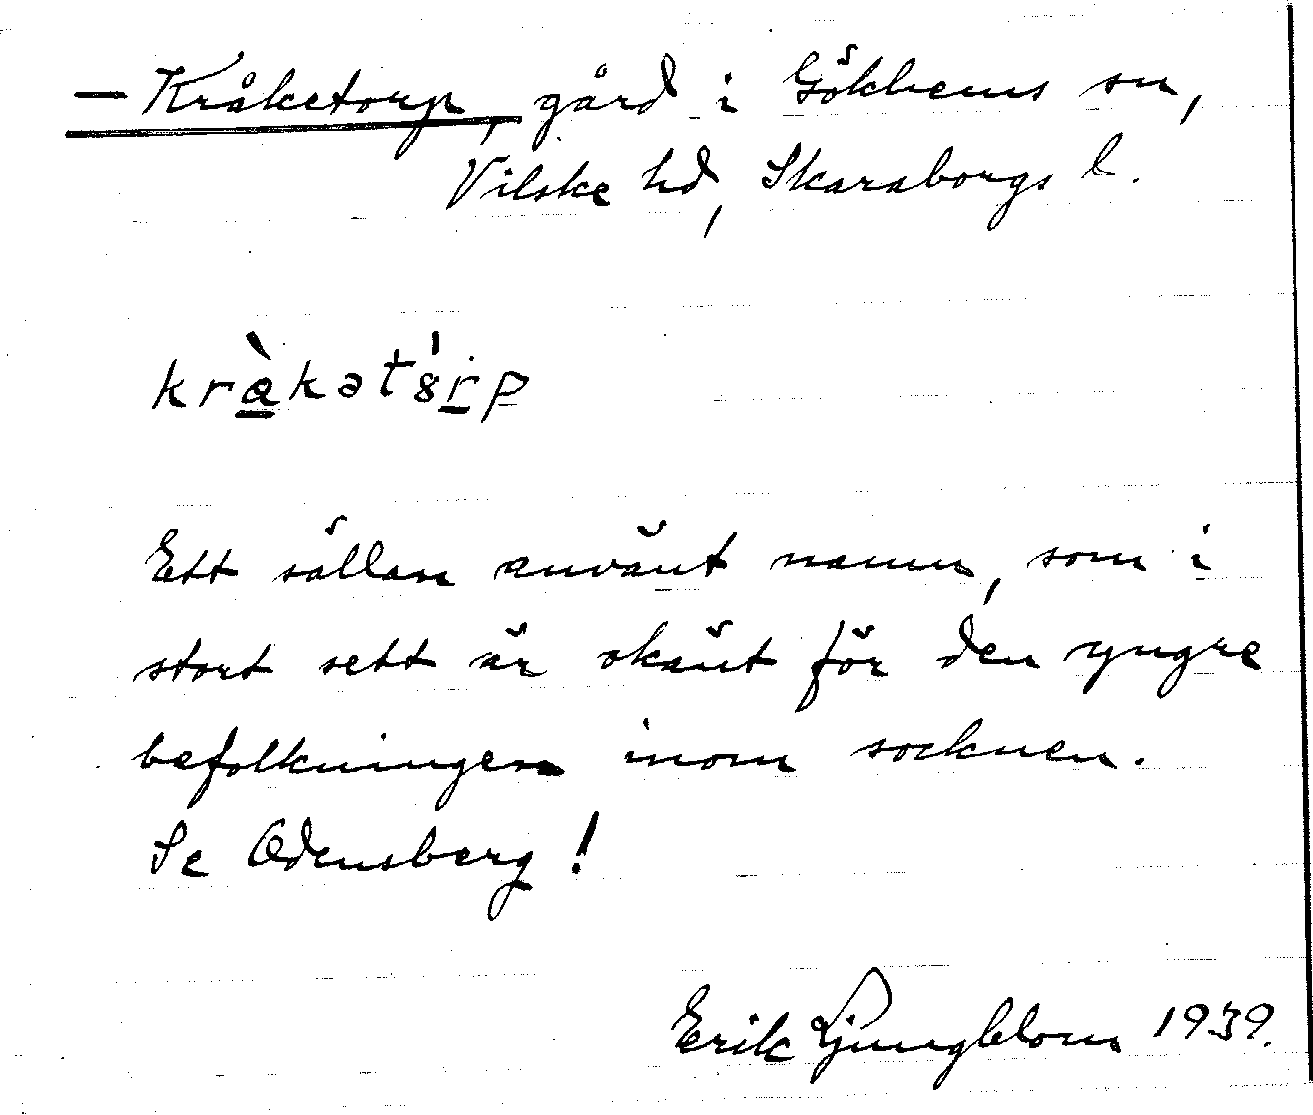 – Kråketorp, gård i Gökhems sn,
Vilske hd, Skaraborgs l.
kræ̀kət8́rp
Ett sällan använt namn, som i
stort sett är okänt för den yngre
befolkningen inom socknen.
Se Odensberg!
Erik Ljungblom 1939.